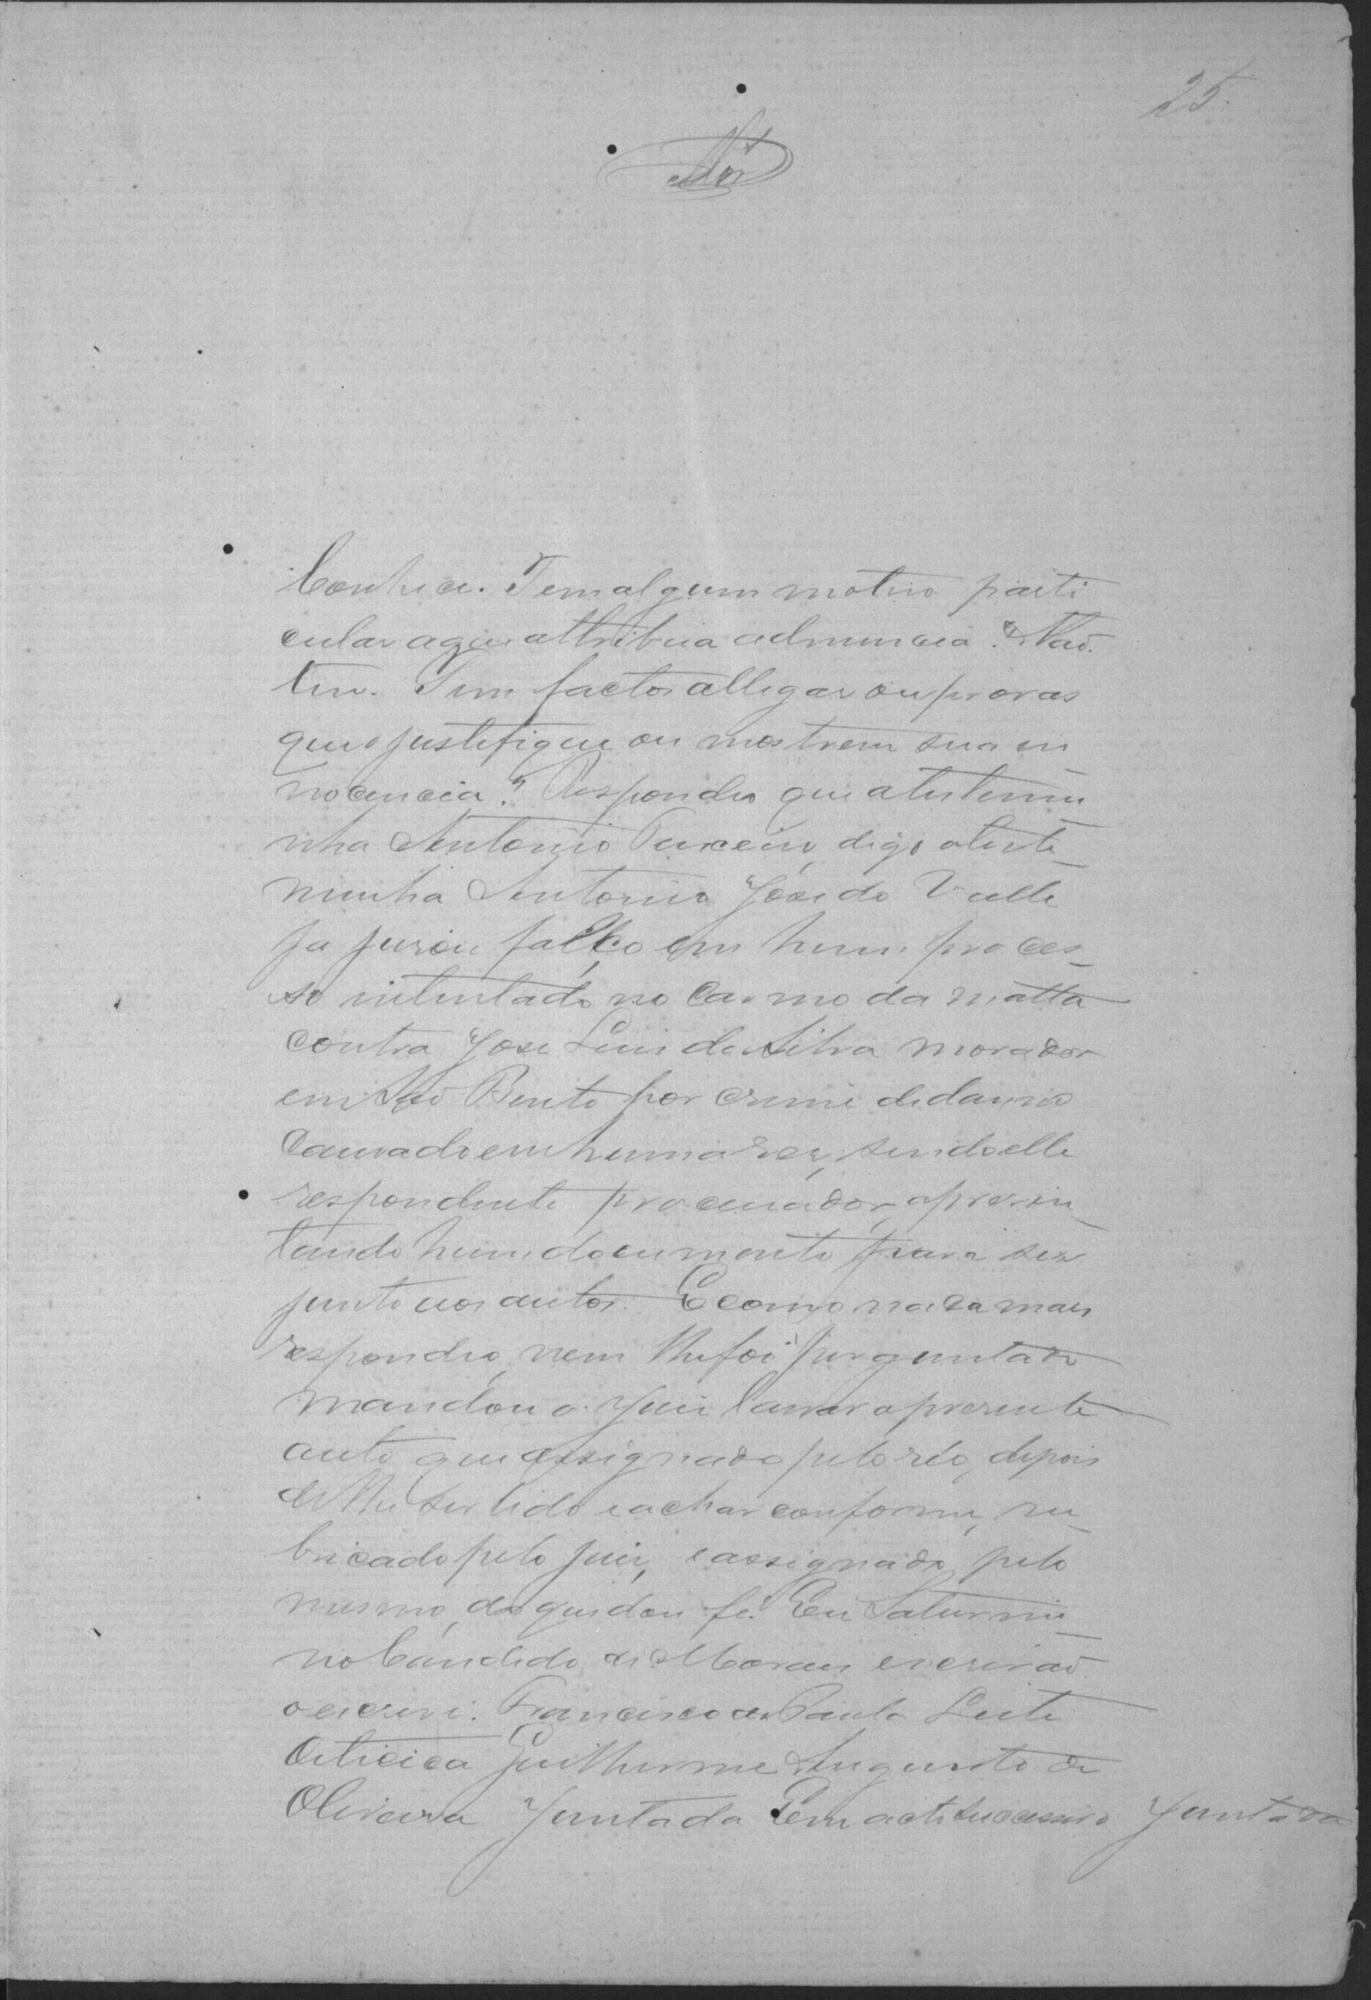 25
Conhece. Tem algum motivo parti
cular a que attribua a denuncia? Não
tem. Tem factos allegar ou provas
que o justifique ou mostrem sua in
nocencia? Respondeo que a testemu
nha Antonio digo a teste
munha Antonio José do Valle
ja jurou falço em hum proces
so intentado no Carmo da Matta
contra José Luis da Silva morador
em São Bento por crime de damno
causado em huma rez, sendo elle
respondente procurador, apresen
tando hum documento para ser
junto aos autos. E como nada mais
respondeo, nem lhe foi perguntado
mandou o Juiz lavrar o presente
auto que assignado pelo réo, depois
de lhe ser lido e achar conforme, ru
bricado pelo juiz, e assignado pelo
mesmo, do que dou fé. Eu Saturni
no Candido de Moraes escrivão
o escrevi. Francisco de Paula Leite
Oiticica Guilherme Augusto de
Oliveira Juntada Em acto successivo Juntada